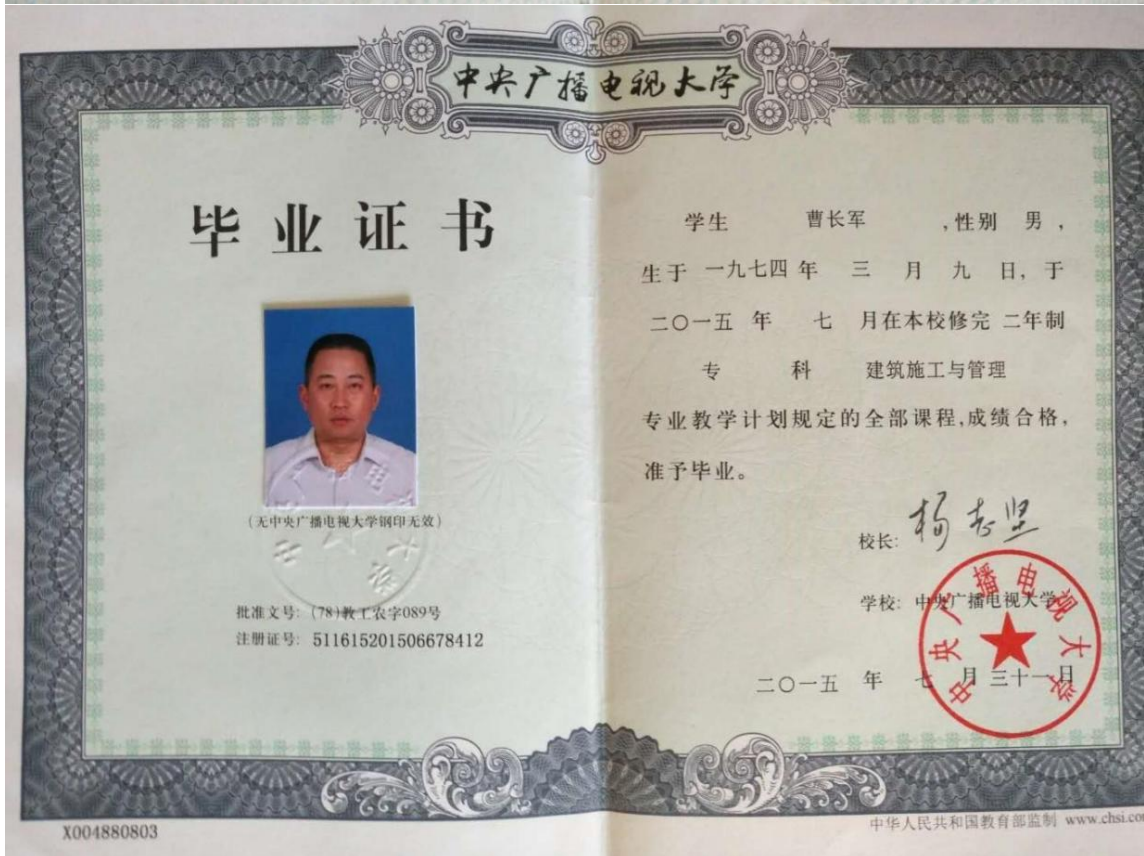 中央广播电视大学
毕业证书
(无中央广播电视大学钢印无效)
批准文号: (78)教工农字089号
注册证号: 511615201506678412
X004880803
学生 曹长军 ,性别 男 ,
生于 一九七四 年 三 月 九 日, 于
二〇一五 年 七 月在本校修完 二年制
专 科 建筑施工与管理
专业教学计划规定的全部课程,成绩合格,
准予毕业。
校长: 杨志坚
学校: 中央广播电视大学
中央广播电视大学
二〇一五 年 七 月 三十一 日
中华人民共和国教育部监制 www.chsi.co